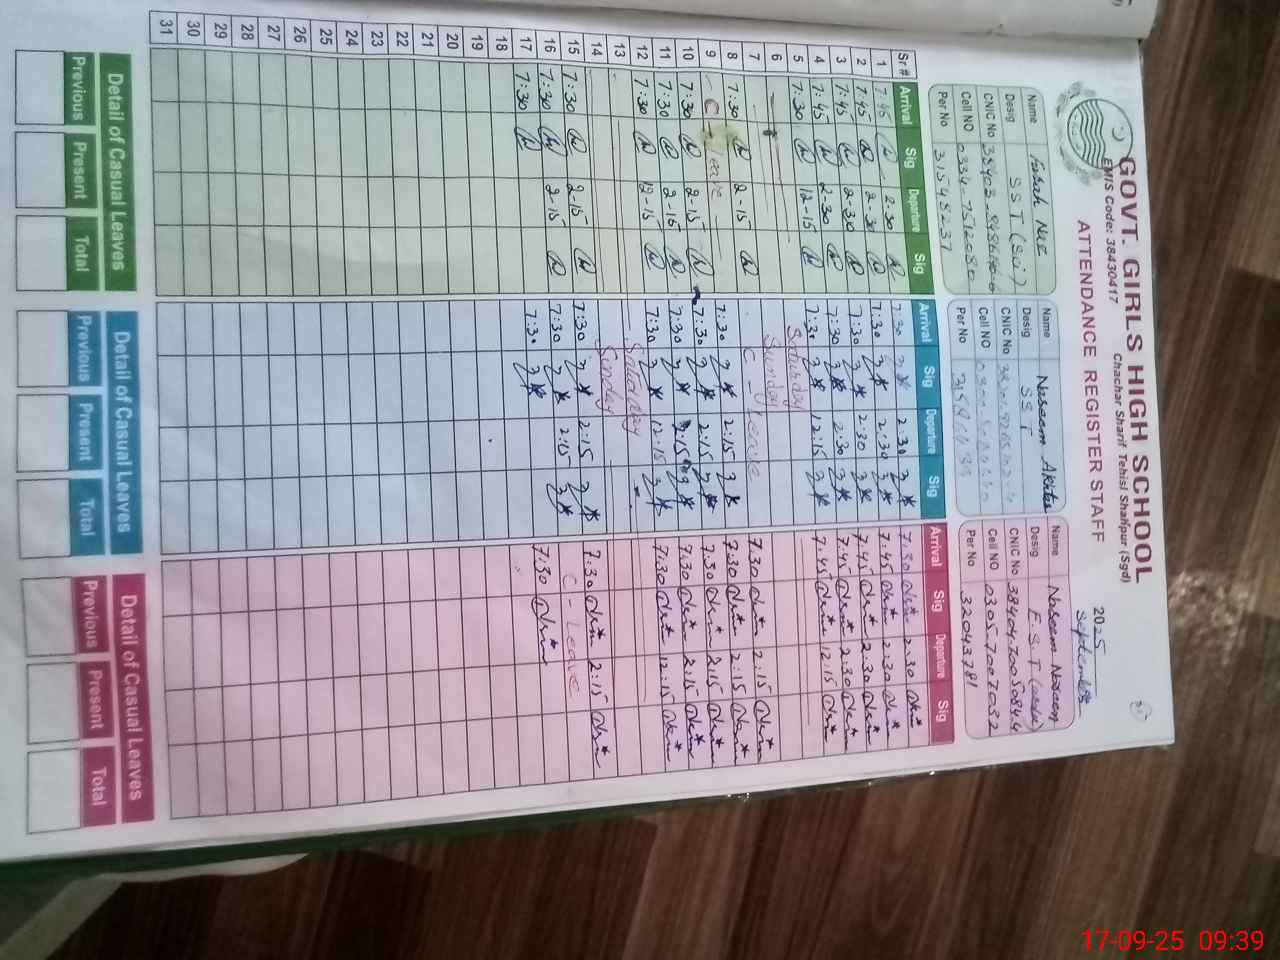 GOVT. GIRLS HIGH SCHOOL
EMIS Code: 38430417 Chachar Sharif Tehisl Shahpur (Sgd)
ATTENDANCE REGISTER STAFF
2025
September
Name
Desig SST (Sci)
CNIC No
Cell NO 0334-7512080
Per No 31548237
Name Naseem Akhtar
Desig SST
CNIC No
Cell NO
Per No
Name Naseem
Desig E.S.T
CNIC No 38404
Cell NO 0305 7007032
Per No 32043781
Sr# Arrival Sig Departure Sig Arrival Sig Departure Sig Arrival Sig Departure Sig
1 7:45 2-30 7:30 2:30 7:30 2:30
2 7:45 2-30 7:30 2:30 7:45 2:30
3 7:45 2-30 7:30 2:30 7:45 2:30
4 7:45 2-30 7:30 2:30 7:45 2:30
5 7:30 12-15 7:30 12:15 7:45 12:15
6 Saturday
7 Sunday
8 7:30 2-15 C-Leave 7:30 2:15
9 C-Leave 7:30 2:15 7:30 2:15
10 7:30 2-15 7:30 2:15 7:30 2:15
11 7:30 2-15 7:30 2:15 7:30 2:15
12 7:30 12-15 7:30 12:15 7:30 12:15
13 Saturday
14 Sunday
15 7:30 2-15 7:30 2:15 7:30 2:15
16 7:30 2-15 7:30 2:15 C-Leave
17 7:30 7:30 7:30
18
19
20
21
22
23
24
25
26
27
28
29
30
31
Detail of Casual Leaves Detail of Casual Leaves Detail of Casual Leaves
Previous Present Total Previous Present Total Previous Present Total
17-09-25 09:39